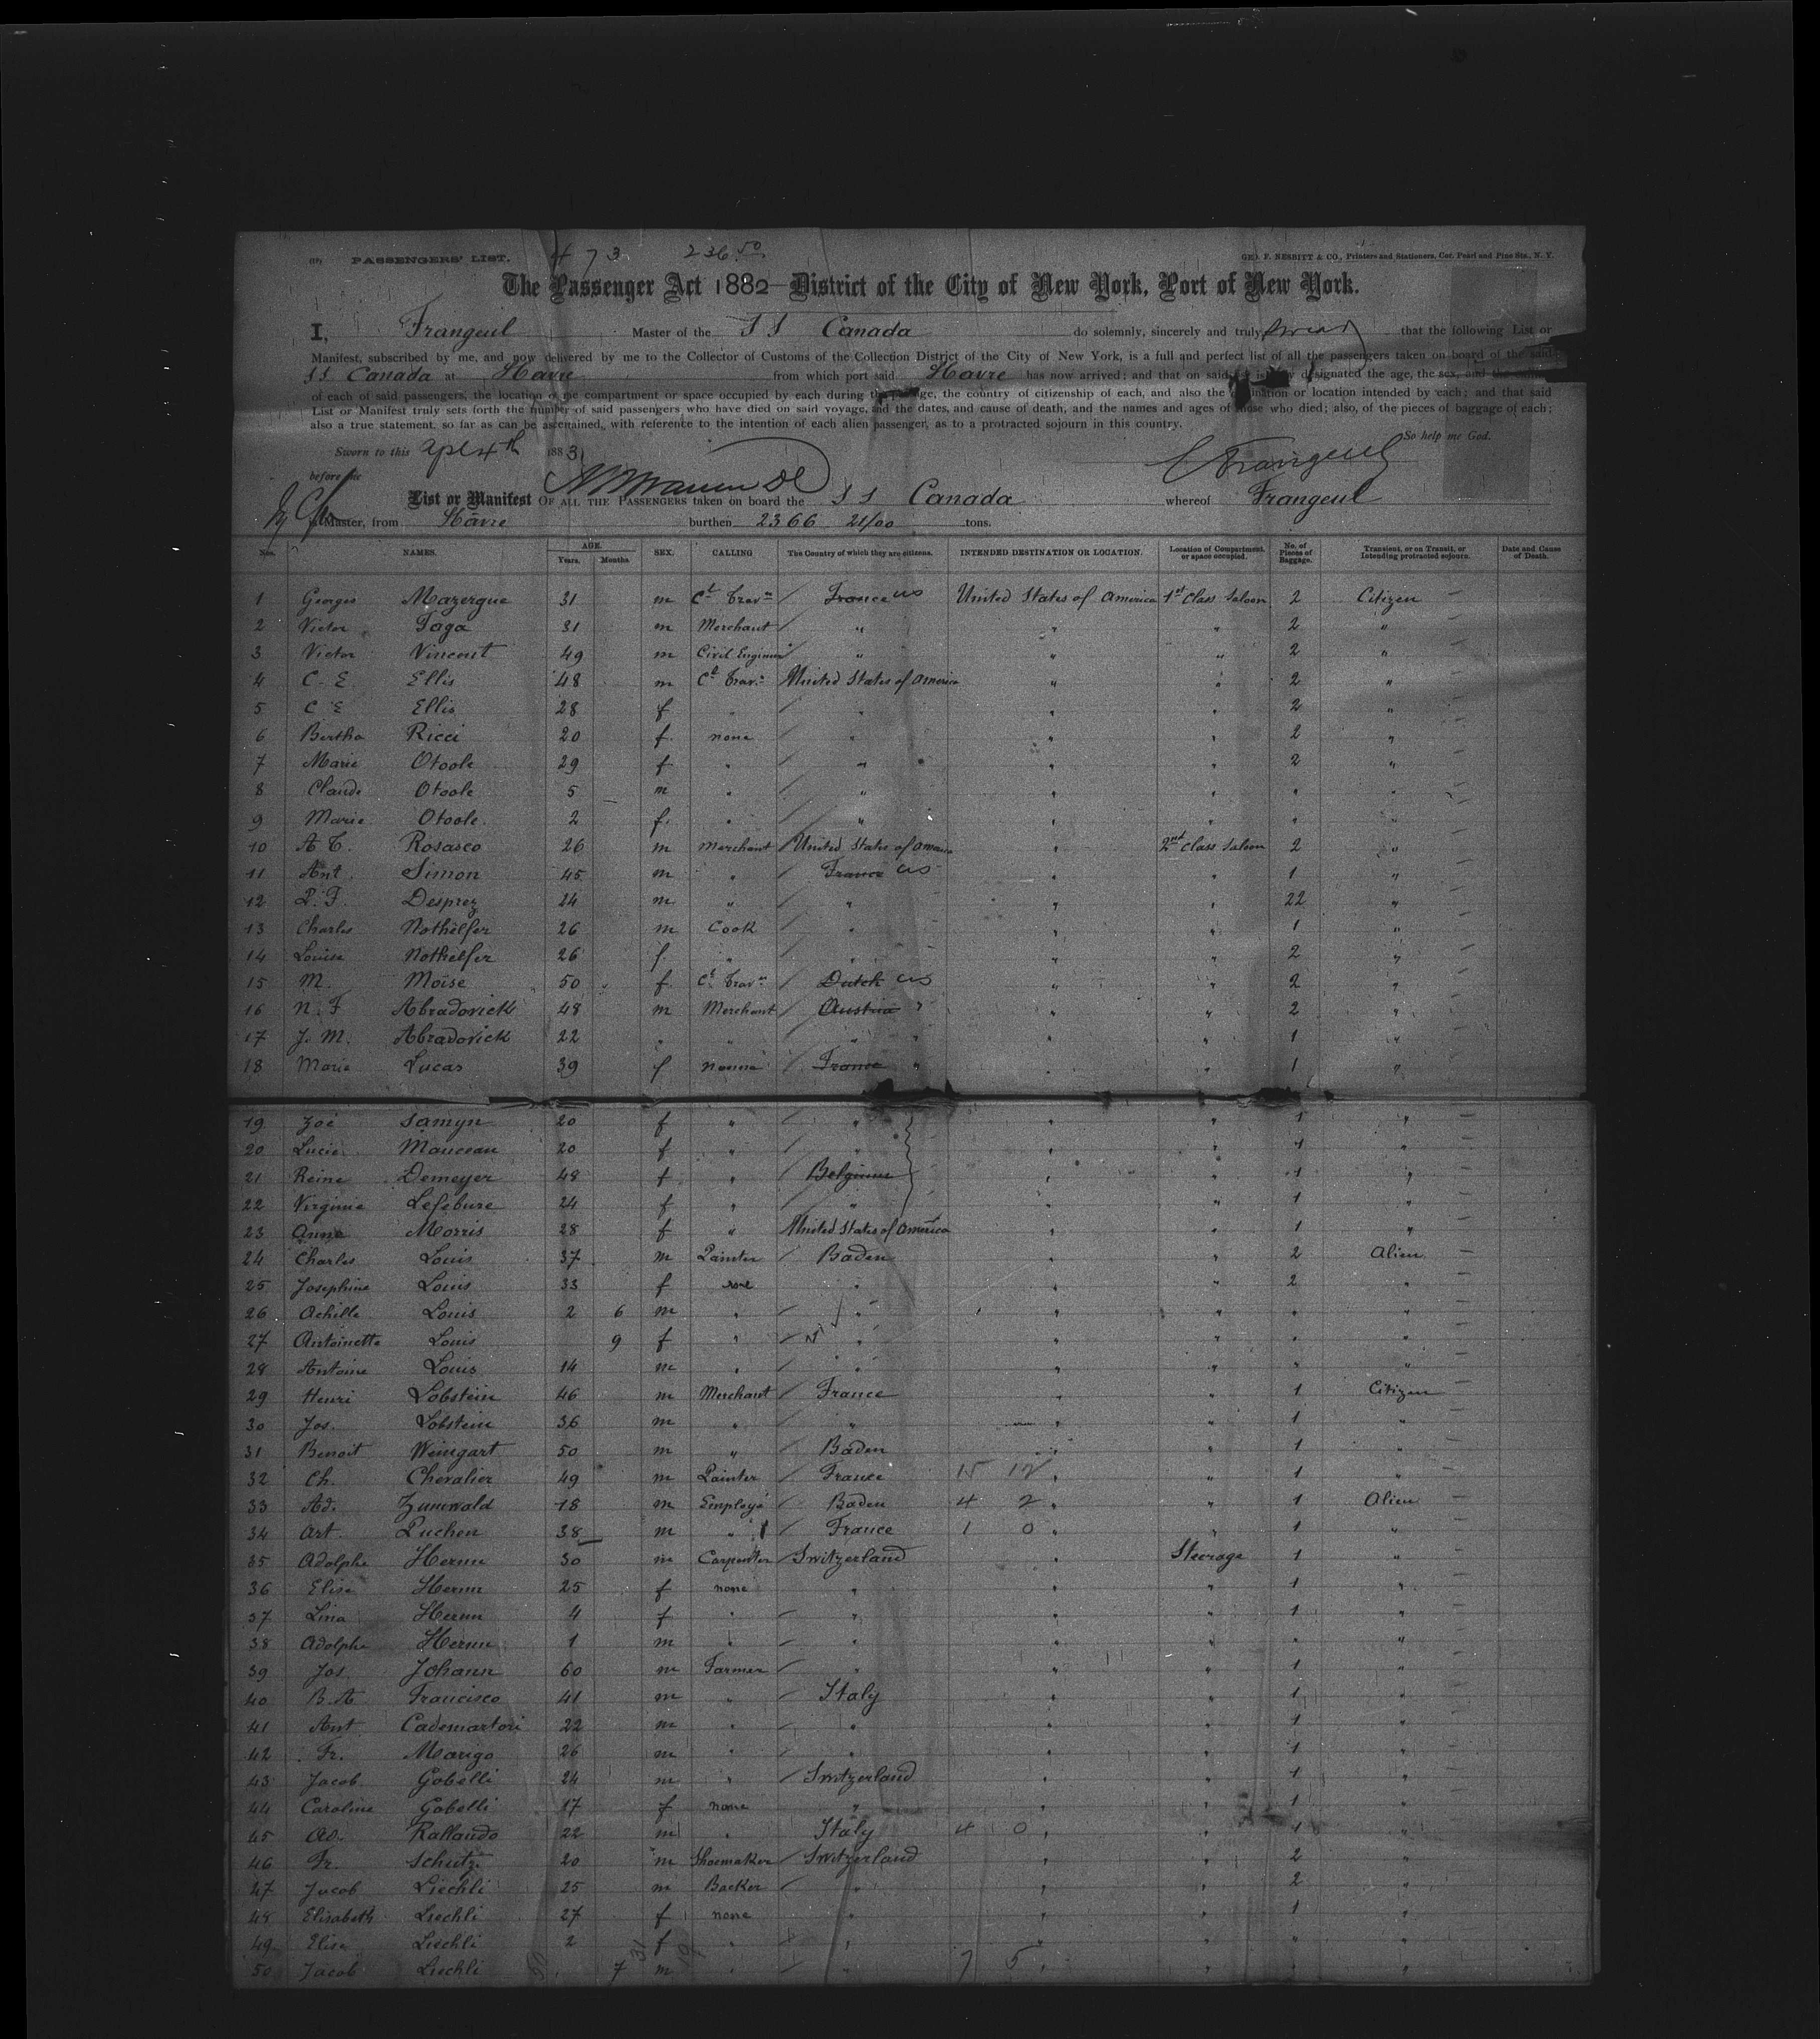 PASSENGERS' LIST. 473 236.50 GEO. F. NESBITT & CO., Printers and Stationers, Cor. Pearl and Pine Sts., N. Y.
The Passenger Act 1882 District of the City of New York, Port of New York.
I, Frangeul Master of the SS Canada do solemnly, sincerely and truly swear that the following List or
Manifest, subscribed by me, and now delivered by me to the Collector of Customs of the Collection District of the City of New York, is a full and perfect list of all the passengers taken on board of the said
SS Canada at Havre from which port said Havre has now arrived; and that on said list is designated the age, the sex, and the
of each of said passengers, the location of the compartment or space occupied by each during the passage, the country of citizenship of each, and also the destination or location intended by each; and that said
List or Manifest truly sets forth the number of said passengers who have died on said voyage, and the dates, and cause of death, and the names and ages of those who died; also, of the pieces of baggage of each;
also a true statement, so far as can be ascertained, with reference to the intention of each alien passenger, as to a protracted sojourn in this country.
So help me God.
Sworn to this Apl 4th 1883 Frangeul
before me
List or Manifest OF ALL THE PASSENGERS taken on board the SS Canada whereof Frangeul
is Master, from Havre burthen 2366 21/00 tons.
Nos. NAMES. AGE. Years. Months. SEX. CALLING The Country of which they are citizens. INTENDED DESTINATION OR LOCATION. Location of Compartment or space occupied. No. of Pieces of Baggage. Transient, or on Transit, or Intending protracted sojourn. Date and Cause of Death.
1 Georges Mazergue 31 m Ct Travr France US United States of America 1st Class Saloon 2 Citizen
2 Victor Foga 31 m Merchant " " " 2 "
3 Victor Vincent 49 m Civil Engineer " " " 2 "
4 C. E Ellis 48 m Ct Travr United States of America " " 2 "
5 C E Ellis 28 f " " " " 2 "
6 Bertha Ricci 20 f. none " " " 2 "
7 Marie Otoole 29 f " " " " 2 "
8 Claude Otoole 5 m " " " " " "
9 Marie Otoole. 2 f. " " " " " "
10 A C. Rosasco 26 m Merchant United States of America " 2nd Class Saloon 2 "
11 Ant. Simon 45 m " France US " " 1 "
12 P. F. Desprez 24 m " " " " 22 "
13 Charles Nothelfer 26 m Cook " " " 1 "
14 Louise Nothelfer 26 f. " " " " 2 "
15 M. Moïse 50 f. Ct Travr Dutch US " " 2 "
16 N. F Abradovick 48 m Merchant Austria " " " 2 "
17 J. M. Abradovick 22 " " " " " " 1 "
18 Marie Lucas 39 f France " " " 1 "
19 Zoé Samyn 20 f " " " " 1 "
20 Lucie Manceau 20 f " " " " 1 "
21 Reine Demeyer 48 f " Belgium " " 1 "
22 Virginie Lefebure 24 f " " " " 1 "
23 Anna Morris 28 f " United States of America " " 1 "
24 Charles Louis 37 m Painter Baden " " 2 Alien
25 Josephine Louis 33 f none " " " 2 "
26 Achille Louis 2 6 m " " " " " "
27 Antoinette Louis 9 f " " " " " "
28 Antoine Louis 14 m " " " " " "
29 Henri Lobstein 46 m Merchant France " " 1 Citizen
30 Jos. Lobstein 36 m " " " " 1 "
31 Benoit Weingart 50 m " Baden " " 1 "
32 Ch. Chevalier 49 m Painter France 15 12 " " 1 "
33 Ad. Zumwald 18 m Employé Baden 4 2 " " 1 Alien
34 Art. Puchen 38 m " France 1 0 " " 1 "
35 Adolphe Hermn 30 m Carpenter Switzerland " Steerage 1 "
36 Elise Hermn 25 f none " " " 1 "
37 Lina Hermn 4 f " " " " 1 "
38 Adolphe Hermn 1 m " " " " " "
39 Jos. Johann 60 m Farmer " " " 1 "
40 B. A Francisco 41 m " Italy " " 1 "
41 Ant Cademartori 22 m " " " " 1 "
42 Fr. Marigo 26 m " " " " 1 "
43 Jacob Gobelli 24 m " Switzerland " " 1 "
44 Caroline Gobelli 17 f none " " " 1 "
45 Ad. Rallando 22 m " Italy 4 0 " " 1 "
46 Fr. Schutz 20 m Shoemaker Switzerland " " 2 "
47 Jacob Liechli 25 m Backer " " " 2 "
48 Elisabeth Liechli 27 f none " " " 1 "
49 Elise Liechli 2 f " " " " " "
50 Jacob Liechli 7 m " " 7 5 " " " "